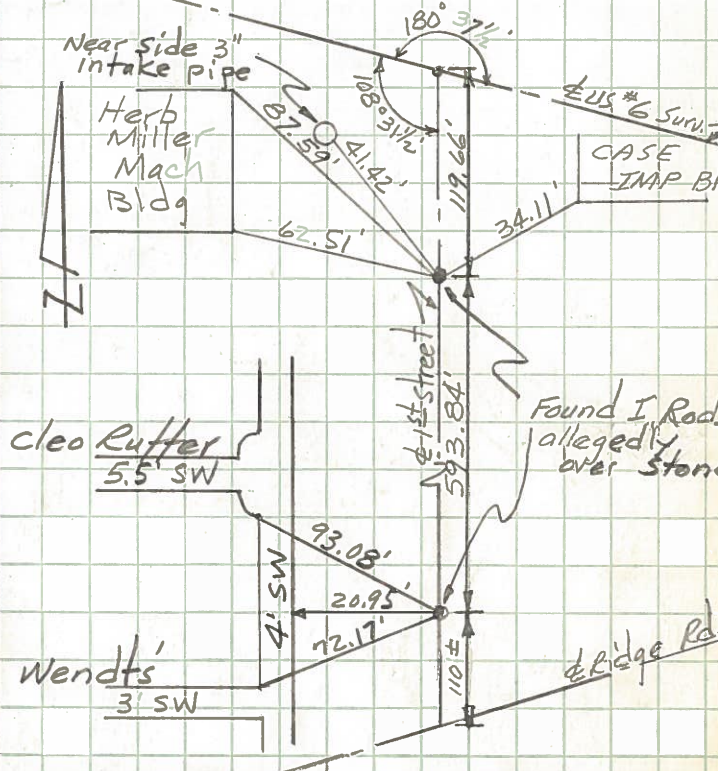 180° 37½'
Near side 3"
intake pipe
108° 31½'
℄ US #6 Surv.
Herb
Miller
Mach
Bldg
87.59'
41.42'
119.66'
CASE
IMP
34.11'
62.51'
℄ 1st street
593.84'
Found I Rod
allegedly
over Ston
Cleo Rutter
5.5' SW
93.08'
4' SW
20.95'
72.17'
110 ±
Wendts'
3' SW
℄ Ridge Rd